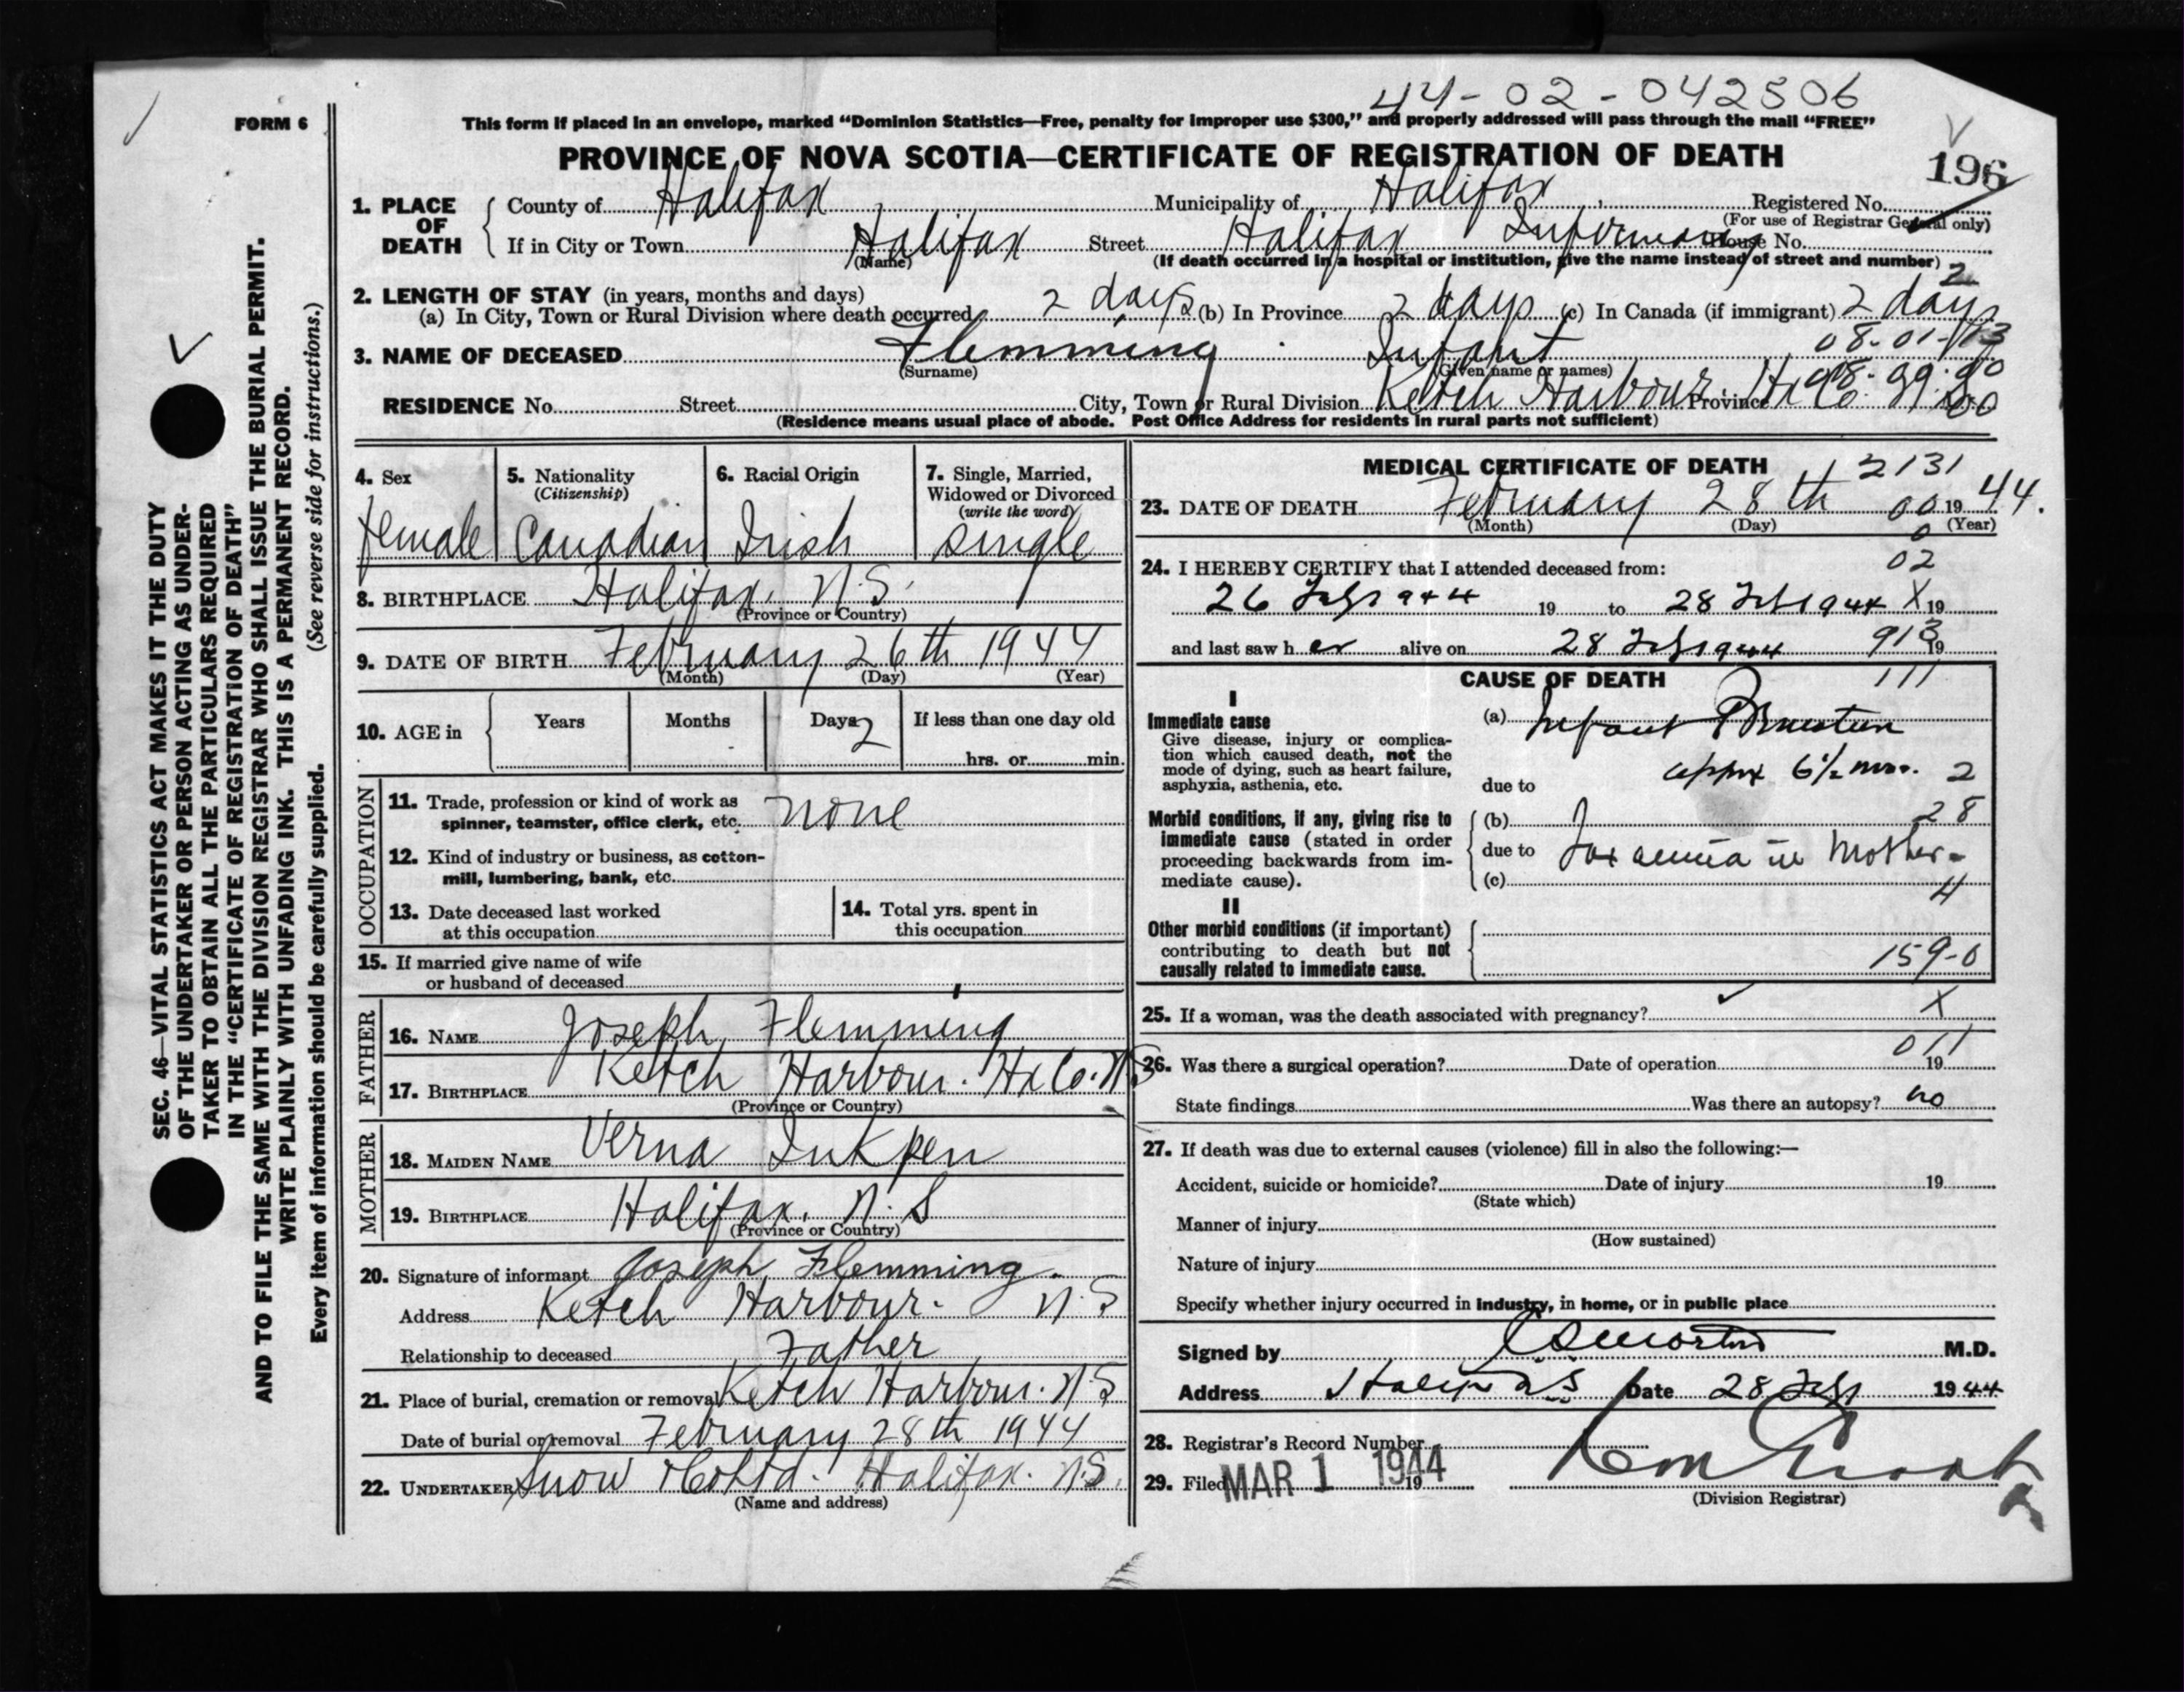 44-02-042506
FORM 6
This form if placed in an envelope, marked “Dominion Statistics—Free, penalty for improper use $300,” and properly addressed will pass through the mail “FREE”
PROVINCE OF NOVA SCOTIA—CERTIFICATE OF REGISTRATION OF DEATH
196
1. PLACE OF DEATH
County of Halifax Municipality of Halifax Registered No.
(For use of Registrar General only)
If in City or Town Halifax Street Halifax Infirmary House No.
(Name) (If death occurred in a hospital or institution, give the name instead of street and number)
2. LENGTH OF STAY (in years, months and days)
(a) In City, Town or Rural Division where death occurred 2 days (b) In Province 2 days (c) In Canada (if immigrant) 2 days
2
3. NAME OF DECEASED Flemming Infant
(Surname) (Given name or names)
RESIDENCE No. Street City, Town or Rural Division Ketch Harbour. Hx Co. Province
(Residence means usual place of abode. Post Office Address for residents in rural parts not sufficient)
4. Sex female
5. Nationality (Citizenship) Canadian
6. Racial Origin Irish
7. Single, Married, Widowed or Divorced (write the word) single
8. BIRTHPLACE Halifax, N.S.
(Province or Country)
9. DATE OF BIRTH February 26th 1944
(Month) (Day) (Year)
10. AGE in Years Months Days 2 If less than one day old
hrs. or min.
OCCUPATION
11. Trade, profession or kind of work as
spinner, teamster, office clerk, etc. none
12. Kind of industry or business, as cotton-
mill, lumbering, bank, etc.
13. Date deceased last worked
at this occupation
14. Total yrs. spent in
this occupation
15. If married give name of wife
or husband of deceased
FATHER
16. NAME Joseph Flemming
17. BIRTHPLACE Ketch Harbour. Hx Co. N S
(Province or Country)
MOTHER
18. MAIDEN NAME Verna Inkpen
19. BIRTHPLACE Halifax, N. S
(Province or Country)
20. Signature of informant Joseph Flemming.
Address Ketch Harbour. N.S
Relationship to deceased Father
21. Place of burial, cremation or removal Ketch Harbour. N S
Date of burial or removal February 28th 1944
22. UNDERTAKER Snow & Co Ltd. Halifax. N.S.
(Name and address)
MEDICAL CERTIFICATE OF DEATH
2131
23. DATE OF DEATH February 28th 1944.
(Month) (Day) (Year)
00
0
02
24. I HEREBY CERTIFY that I attended deceased from:
26 Feb 1944 19 to 28 Feb 1944 X 19
and last saw h er alive on 28 Feb 1944 19
CAUSE OF DEATH
111
I
Immediate cause
Give disease, injury or complica-
tion which caused death, not the
mode of dying, such as heart failure,
asphyxia, asthenia, etc.
(a) Infant
due to approx 6½ mos. 2
28
Morbid conditions, if any, giving rise to
immediate cause (stated in order
proceeding backwards from im-
mediate cause).
(b)
due to Toxaemia in Mother.
(c)
4
II
Other morbid conditions (if important)
contributing to death but not
causally related to immediate cause.
159-0
25. If a woman, was the death associated with pregnancy? X
011
26. Was there a surgical operation? Date of operation 19
State findings Was there an autopsy? no
27. If death was due to external causes (violence) fill in also the following:—
Accident, suicide or homicide? Date of injury 19
(State which)
Manner of injury
(How sustained)
Nature of injury
Specify whether injury occurred in industry, in home, or in public place
Signed by M.D.
Address Date 28 Feb 1944
28. Registrar's Record Number
29. Filed MAR 1 1944 19
(Division Registrar)
SEC. 46—VITAL STATISTICS ACT MAKES IT THE DUTY
OF THE UNDERTAKER OR PERSON ACTING AS UNDER-
TAKER TO OBTAIN ALL THE PARTICULARS REQUIRED
IN THE “CERTIFICATE OF REGISTRATION OF DEATH”
AND TO FILE THE SAME WITH THE DIVISION REGISTRAR WHO SHALL ISSUE THE BURIAL PERMIT.
WRITE PLAINLY WITH UNFADING INK. THIS IS A PERMANENT RECORD.
Every item of information should be carefully supplied. (See reverse side for instructions.)